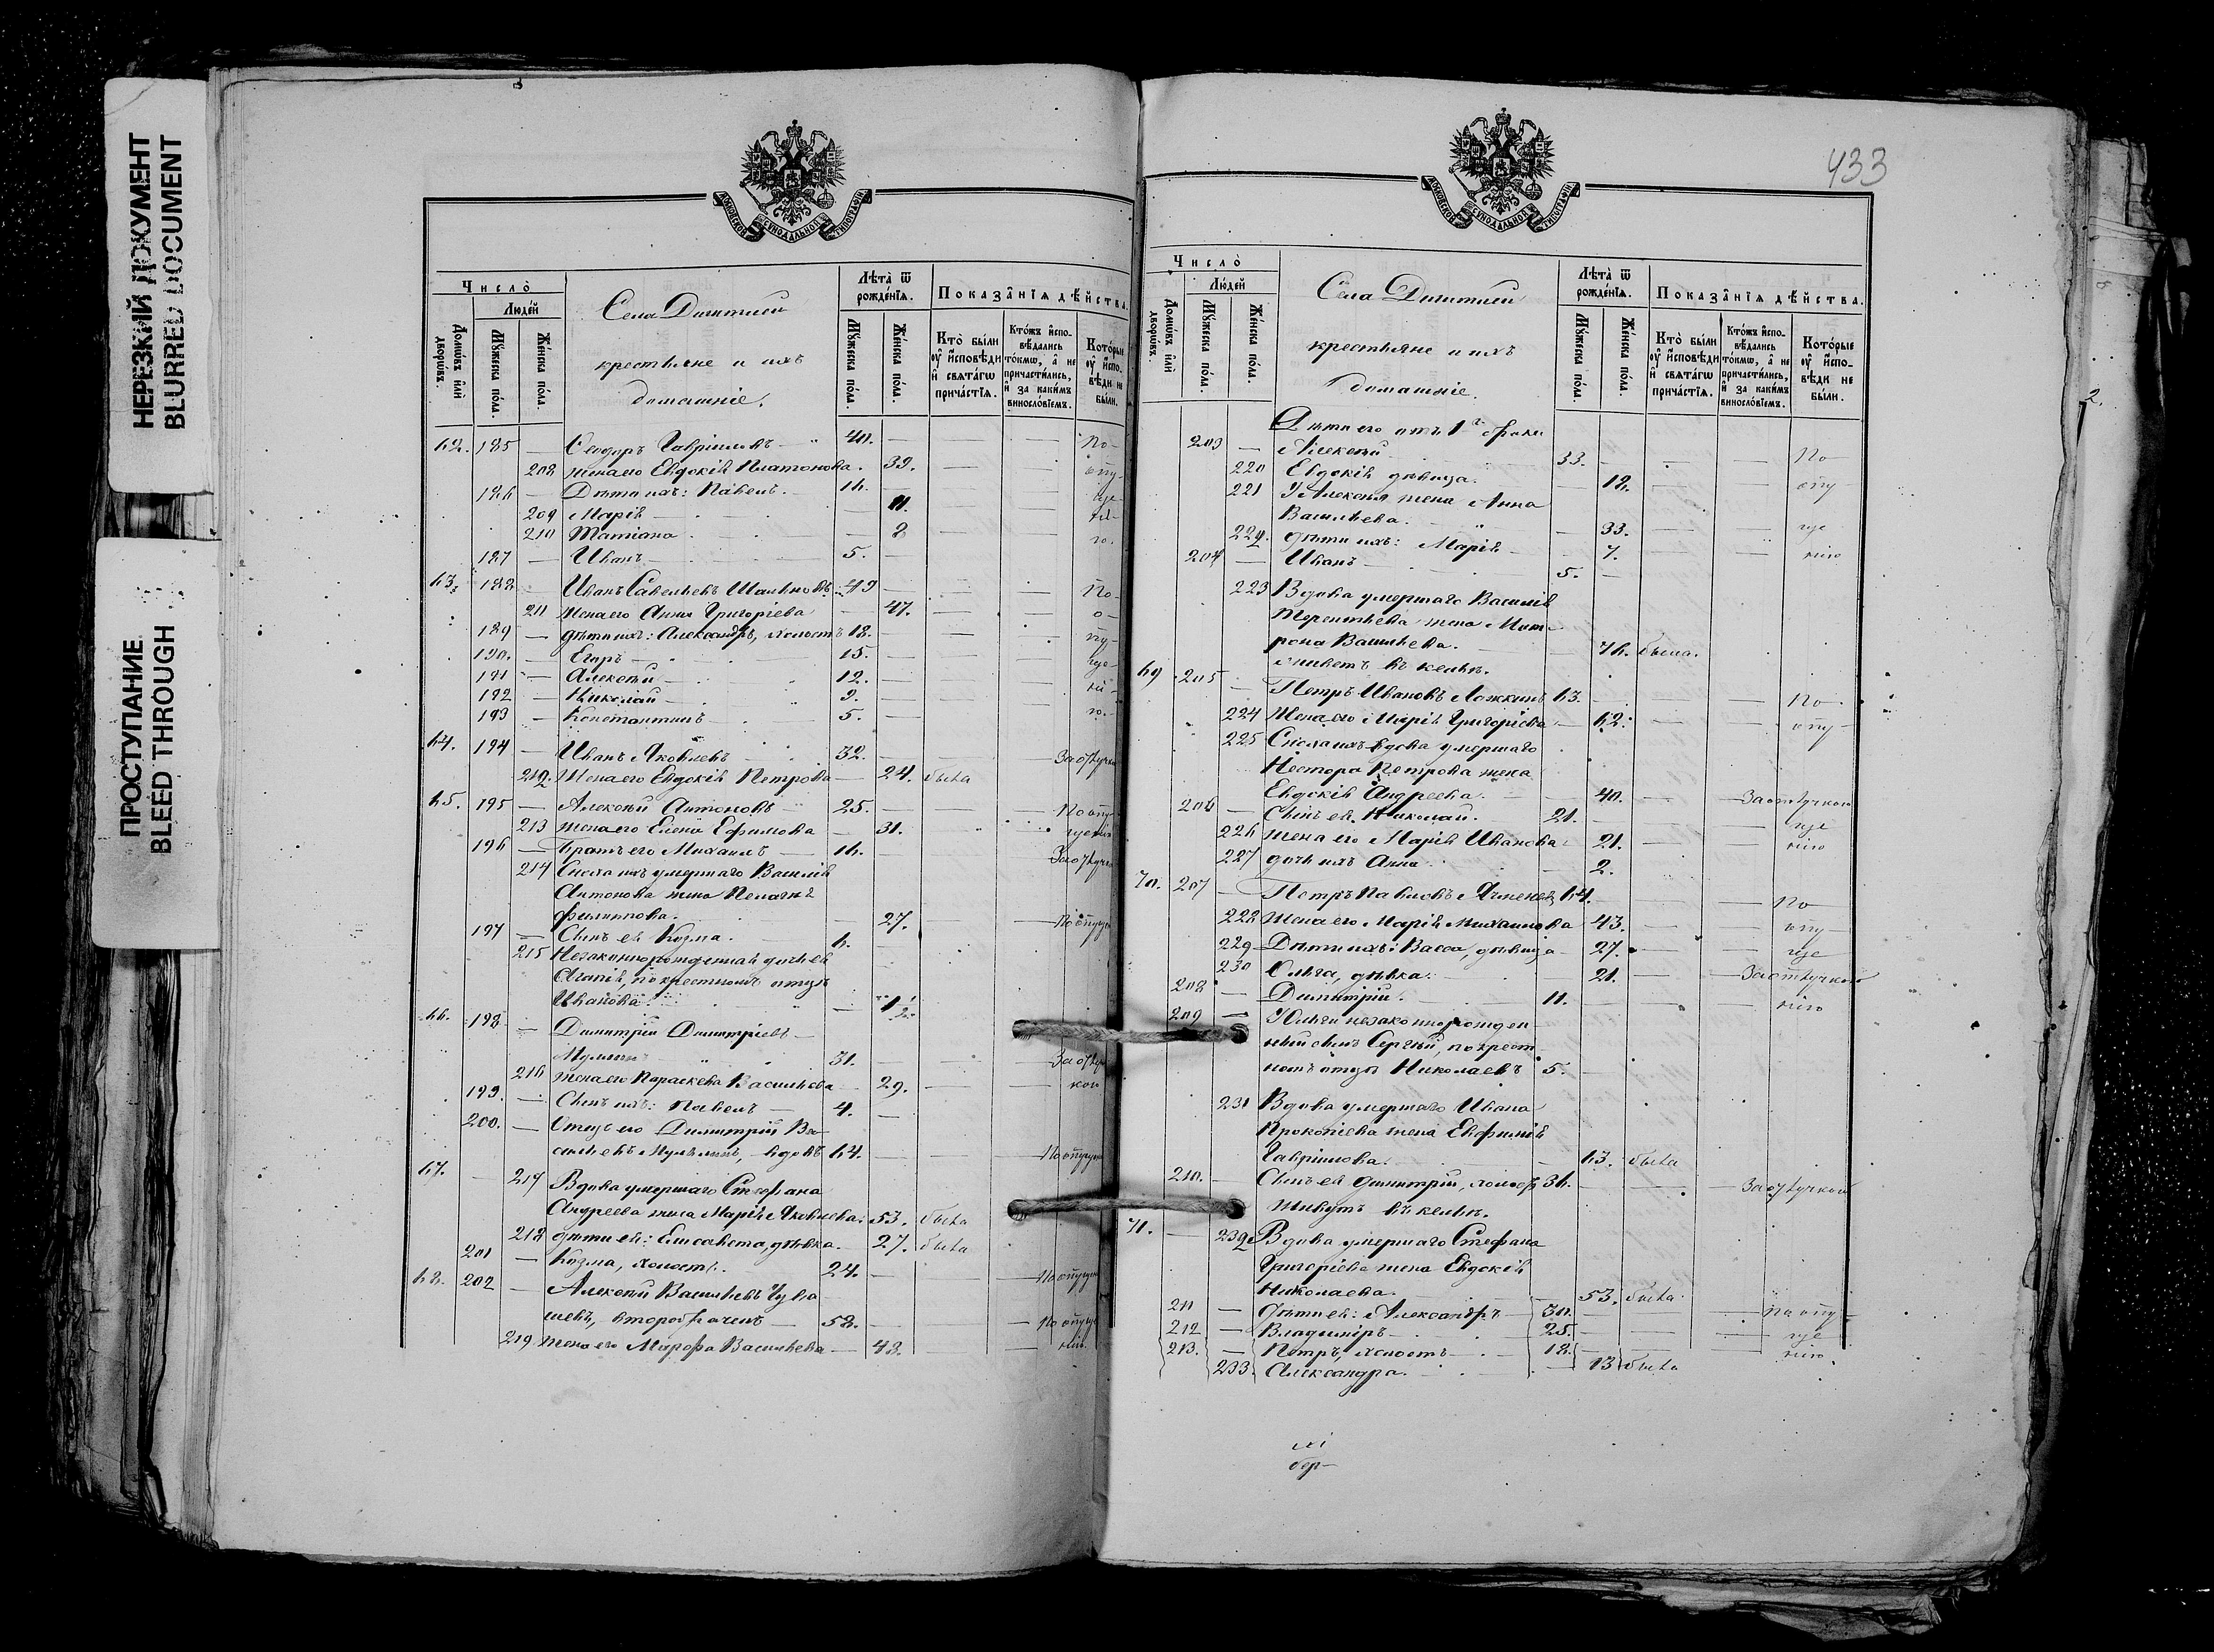 НЕРЕЗКИЙ ДОКУМЕНТ
BLURRED DOCUMENT
ПРОСТУПАНИЕ
BLEED THROUGH
МОСКОВСКОЙ СѴНОДАЛЬНОЙ ТИПОГРАФІИ
Число̀
Людей
Домѡвъ и҆лѝ дворѡвъ.
Мꙋжеска по́ла.
Же́нска по́ла.
Села
крестьяне и ихъ
домашніе.
Лѣта̀ ѿ рожде́нїѧ.
Мꙋжеска по́ла.
Же́нска по́ла.
Показа̑нїѧ дѣ́йства.
Кто̀ бы́ли ᲂу҆ и҆сповѣди и҆ свѧта́гѡ прича́стїѧ.
Кто́жъ и҆спо-вѣдались то́кмѡ, а҆ не причасти́лись, и҆ за каки́мъ винослові́емъ.
Кото́рые ᲂу҆ и҆спо-вѣди не бы́ли.
62. 185 — Ѳеодоръ Гавріиловъ — 40. — По-
208 жена его Евдокія Платонова. 39. — опу-
186 — Дѣти ихъ: Павелъ. 16. — ще-
209 Марія — 11. — ні-
210 Татіана — 8 ю.
187 — Иванъ — 5. —
63. 188 — Иванъ Савельевъ 49 — По-
211 жена его Анна Григоріева — 47. о-
189 — дѣти ихъ: Александръ, холостъ 18. — пу-
190. — Егоръ — 15. — ще-
191 — Алексѣй — 12. — ні-
192 — Николай — 9. —
193 — Константинъ — 5. — ю.
64. 194 — Иванъ Яковлевъ — 32. — За отлуч
212. Жена его Евдокія Петрова — 24. была
65. 195 — Алексѣй Антоновъ 25. — По опу
213 жена его Елена Ефимова — 31.
196 — Братъ его Михаилъ — 16. — За отлуч
214 Сноха ихъ умершаго Василія
Антонова жена Пелагія
Филиппова. 27. — По опущ
197 — Сынъ ея Козма. 6. —
215 Незаконнорожденная дочь ея
Агапія, по крестномъ отцѣ
Иванова. — 1/2
66. 198 — Димитрій Димитріевъ —
31. — За отлуч
216 жена его Параскева Васильева 29. — кою
199. — Сынъ ихъ: Павелъ — 4. —
200. — Отецъ его Димитрій Ва-
сильевъ вдовъ 64. — По опущ
67. — 217 Вдова умершаго Стефана
Андреева жена Марія Яковлева. 53. была
218 дѣти ея: Елисавета, дѣвка. 27. была
201 — Козма, холостъ. 24. — По опущ
68. 202 — Алексѣй Васильевъ Чува
шевъ, второбрачный — 58. — По опуще
219 жена его Марѳа Васильева — 48. — нію.
433
Число̀
Людей
Домѡвъ и҆лѝ дворѡвъ.
Мꙋжеска по́ла.
Же́нска по́ла.
Села
крестьяне и ихъ
домашніе.
Лѣта̀ ѿ рожде́нїѧ.
Мꙋжеска по́ла.
Же́нска по́ла.
Показа̑нїѧ дѣ́йства.
Кто̀ бы́ли ᲂу҆ и҆сповѣди и҆ свѧта́гѡ прича́стїѧ.
Кто́жъ и҆спо-вѣдались то́кмѡ, а҆ не причасти́лись, и҆ за каки́мъ винослові́емъ.
Кото́рые ᲂу҆ и҆спо-вѣди не бы́ли.
Дѣти его отъ 1го брака
203 — Алексѣй 33. — По
220 Евдокія дѣвица. — 18. — опу-
221 У Алексѣя жена Анна
Васильева. — 33. — ще
222. дѣти ихъ: Марія — 7. — нію
204 — Иванъ — 5. —
223 Вдова умершаго Василія
Терентьева жена Мат-
рона Васильева. 76. была.
живетъ въ кельи.
69 205 — Петръ Ивановъ Ложкинъ 63. — По
224 Жена его Марія Григоріева — 62. — опу-
225 Сноха ихъ вдова умершаго
Нестора Петрова жена
Евдокія Андреева. 40. — За отлучкою
206 — Сынъ ея Николай. — 21. — ще
226 жена его Марія Иванова. 21. — нію
227 дочь ихъ Анна — 2.
70. 207 — Петръ Павловъ 64. — По
228 Жена его Марія Михайлова 43. — опу-
229 Дѣти ихъ: Васса, дѣвица — 27. — ще
230 Ольга, дѣвка. 21. — За отлучкою
208 — Димитрій. 11. — нію
209 — У Ольги незаконнорожден
ный сынъ Сергій, по крест-
номъ отцѣ Николаевъ 5. —
231 Вдова умершаго Ивана
Прокопіева жена Евфимія
Гавріилова. 63. — была
210. — Сынъ ея Димитрій, холост 36. — За отлучкою
живутъ въ кельи.
71. — 232 Вдова умершаго Стефана
Григоріева жена Евдокія
Николаева. 53. была.
211 — дѣти ея: Александръ — 30. — По опу-
212 — Владиміръ — 25. — ще
213. — Петръ, холостъ — 18. — нію.
233. Александра. — 13 была